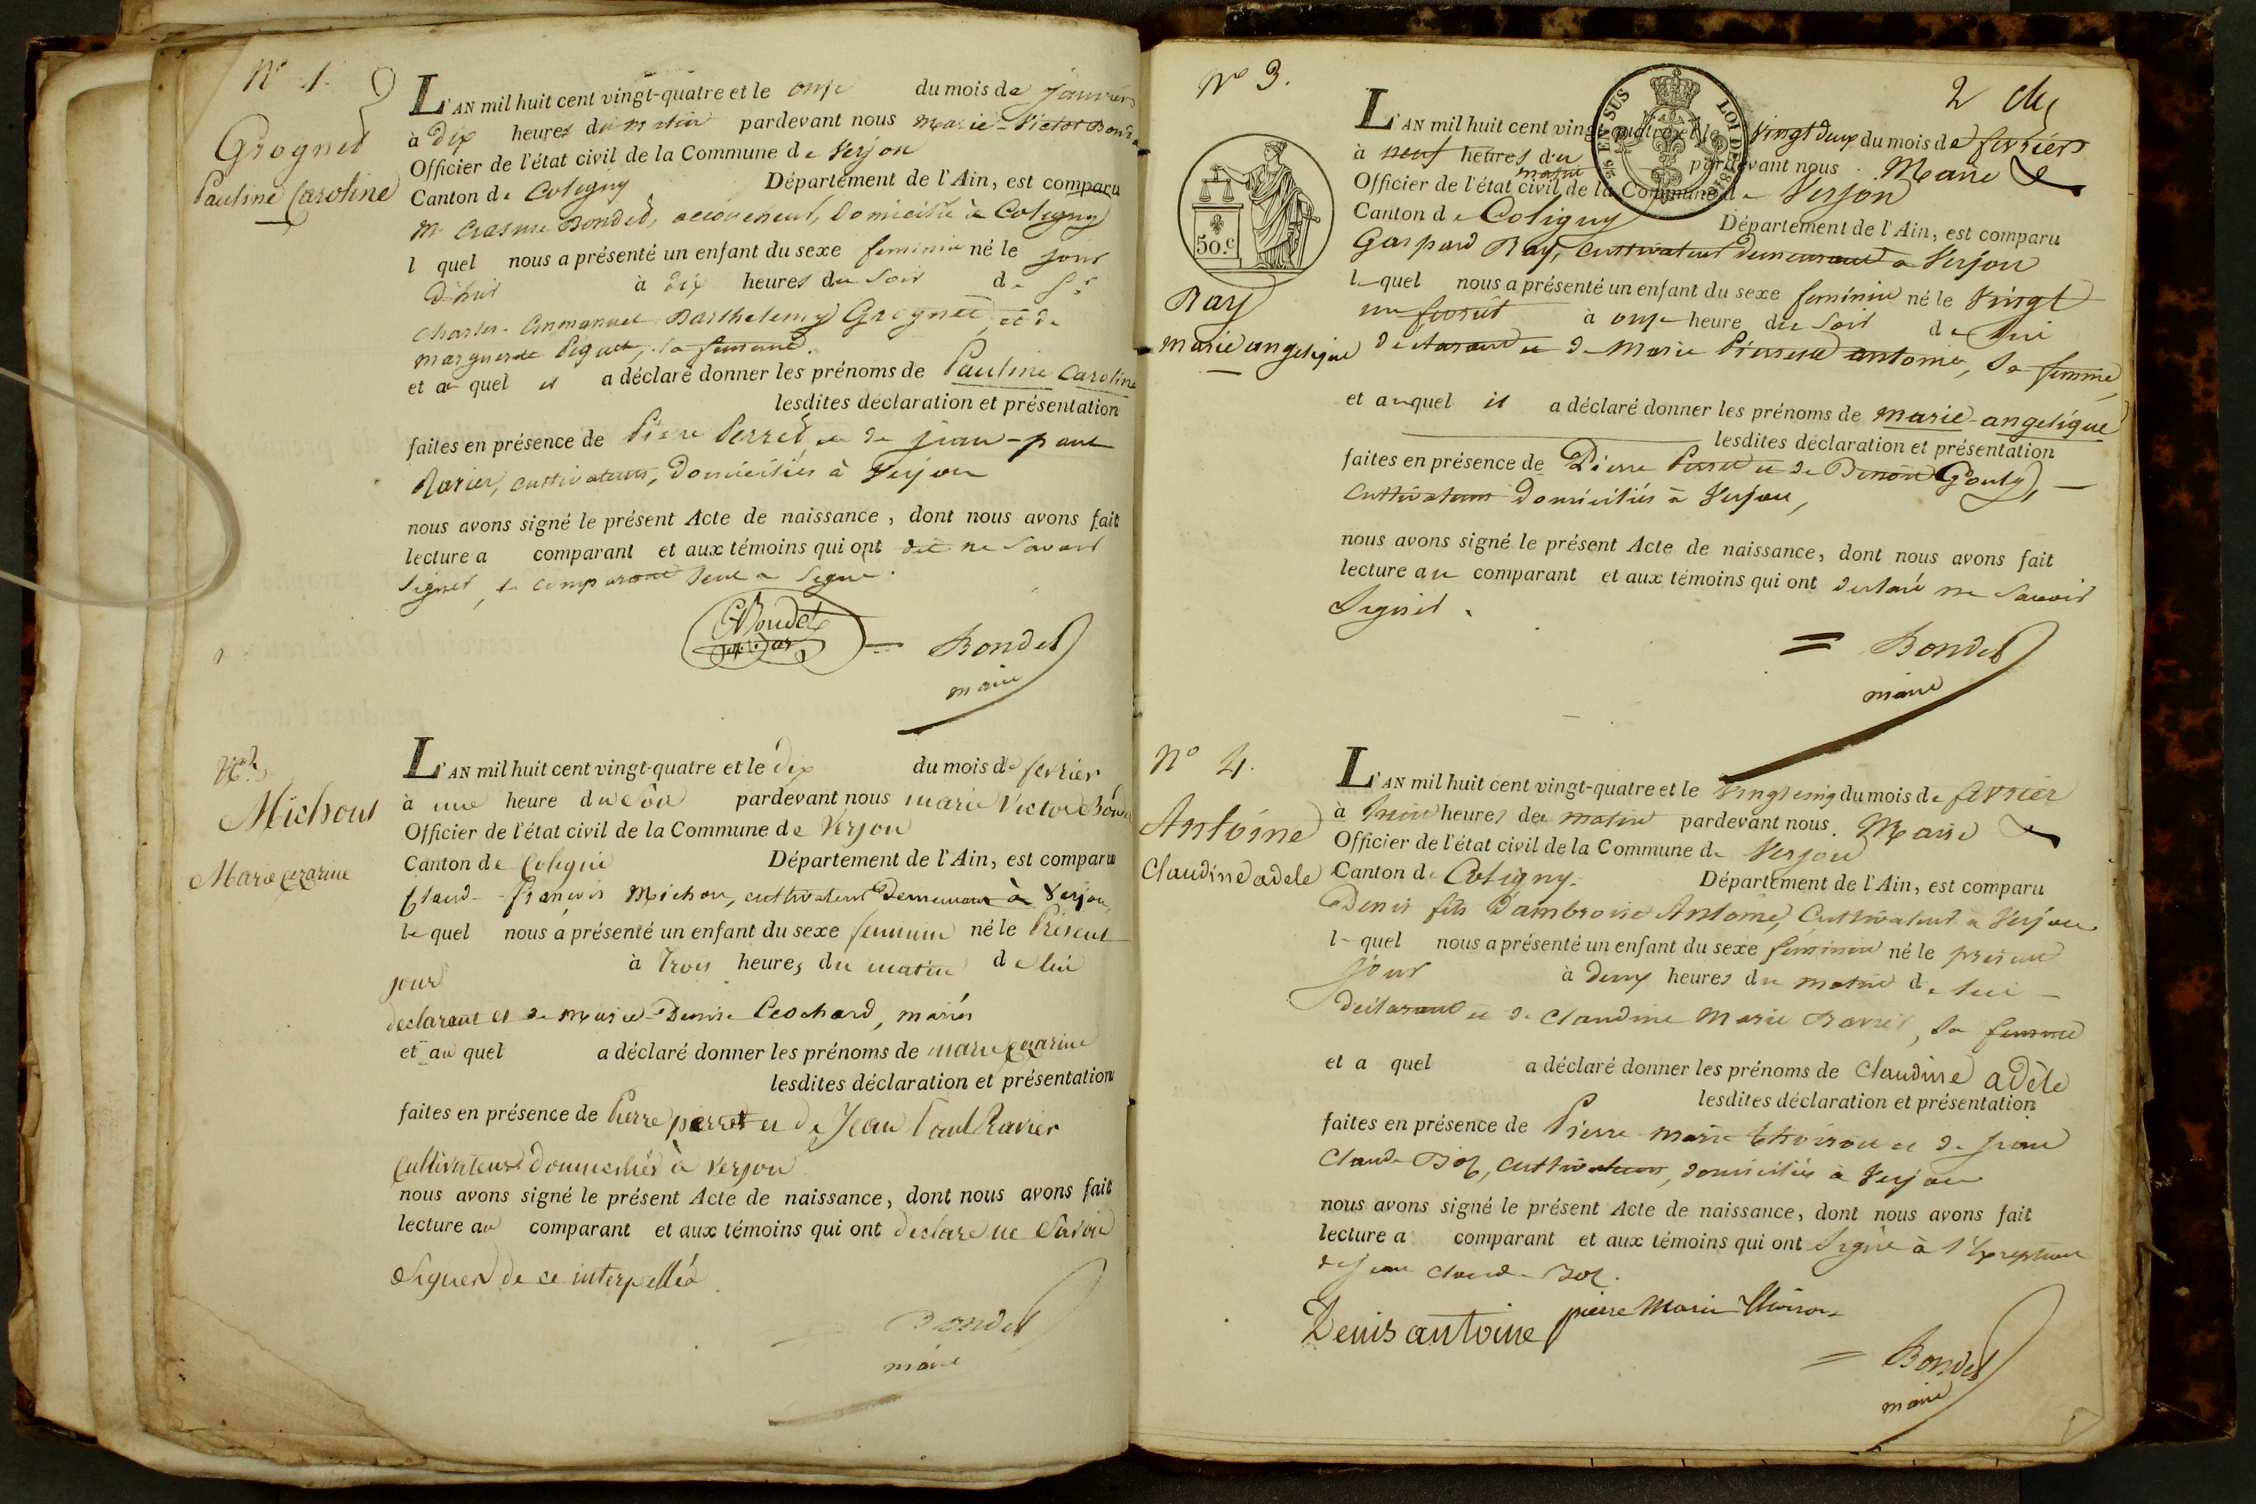 N° 1.
Grognet
Pauline Caroline
L'AN mil huit cent vingt-quatre et le onze du mois de janvier
à dix heures du matin pardevant nous Marie-Victor Bondet
Officier de l'état civil de la Commune de Verjon
Canton de Coligny Département de l'Ain, est comparu
Mr Erasme Bondet, accoucheur, domicilié à Coligny
l quel nous a présenté un enfant du sexe feminin né le jour
d'hier à dix heures du soir de Sr
Charles-Emmanuel Barthelemy Grognet, et de
marguerite Piquet, sa femme.
et au quel il a déclaré donner les prénoms de Pauline Caroline
lesdites déclaration et présentation
faites en présence de Pierre Perret et de jean-paul
Ravier, cultivateurs, domiciliés à Verjon
nous avons signé le présent Acte de naissance, dont nous avons fait
lecture a comparant et aux témoins qui ont dit ne savoir
signer, le comparant seul a signé.
Bondet
Bondet
maire
N° 2
Michout
Marie cezarine
L'AN mil huit cent vingt-quatre et le dix du mois de fevrier
à une heure du soir pardevant nous marie Victor Bondet
Officier de l'état civil de la Commune de Verjon
Canton de Coligni Département de l'Ain, est comparu
Claude-françois Michou, cultivateur demeurant à Verjon,
le quel nous a présenté un enfant du sexe feminin né le Présent
jour à trois heures du matin de lui
declarant et de Marie-Denise Cochard, mariés
et au quel a déclaré donner les prénoms de marie cezarine
lesdites déclaration et présentation
faites en présence de Pierre perret et de Jean Paul Ravier
cultivateurs domiciliés à Verjon
nous avons signé le présent Acte de naissance, dont nous avons fait
lecture au comparant et aux témoins qui ont declare ne Savoir
Signer de ce interpellés
Bondet
maire
N° 3.
2
EN SUS
LOI DE 1816
50.c
Ray
marie angelique
L'AN mil huit cent vingt-quatre et le vingt deux du mois de fevrier
à neuf heures du matin pardevant nous Maire
Officier de l'état civil de la Commune de Verjon
Canton de Coligny Département de l'Ain, est comparu
Gaspard Ray, cultivateur demeurant a Verjon
le quel nous a présenté un enfant du sexe feminin né le Vingt
un fevrier à onze heure du Soir de lui
declarant et de Marie Pierrette antoine, Sa femme
et au quel il a déclaré donner les prénoms de marie-angelique
lesdites déclaration et présentation
faites en présence de Pierre Perret et de Benoit Gouly,
cultivateurs domiciliés à Verjon,
nous avons signé le présent Acte de naissance, dont nous avons fait
lecture au comparant et aux témoins qui ont declaré ne Savoir
Signer.
Bondet
maire
N° 4.
Antoine
Claudine adele
L'AN mil huit cent vingt-quatre et le vingt cinq du mois de fevrier
à huit heures du matin pardevant nous Maire
Officier de l'état civil de la Commune de Verjon
Canton de Coligny. Département de l'Ain, est comparu
Denis fils d'ambroise Antoine, Cultivateur a Verjon
le quel nous a présenté un enfant du sexe feminin né le présent
jour à deux heures du matin de lui
declarant et de Claudine Marie, Sa femme
et a quel a déclaré donner les prénoms de Claudine adèle
lesdites déclaration et présentation
faites en présence de Pierre Marie Thoison et de jean
Claude Bol, cultivateurs, domiciliés à Verjon
nous avons signé le présent Acte de naissance, dont nous avons fait
lecture a comparant et aux témoins qui ont Signé à l'exception
de jean claude Bol.
Denis antoine pierre Marie Thoison
Bondet
maire